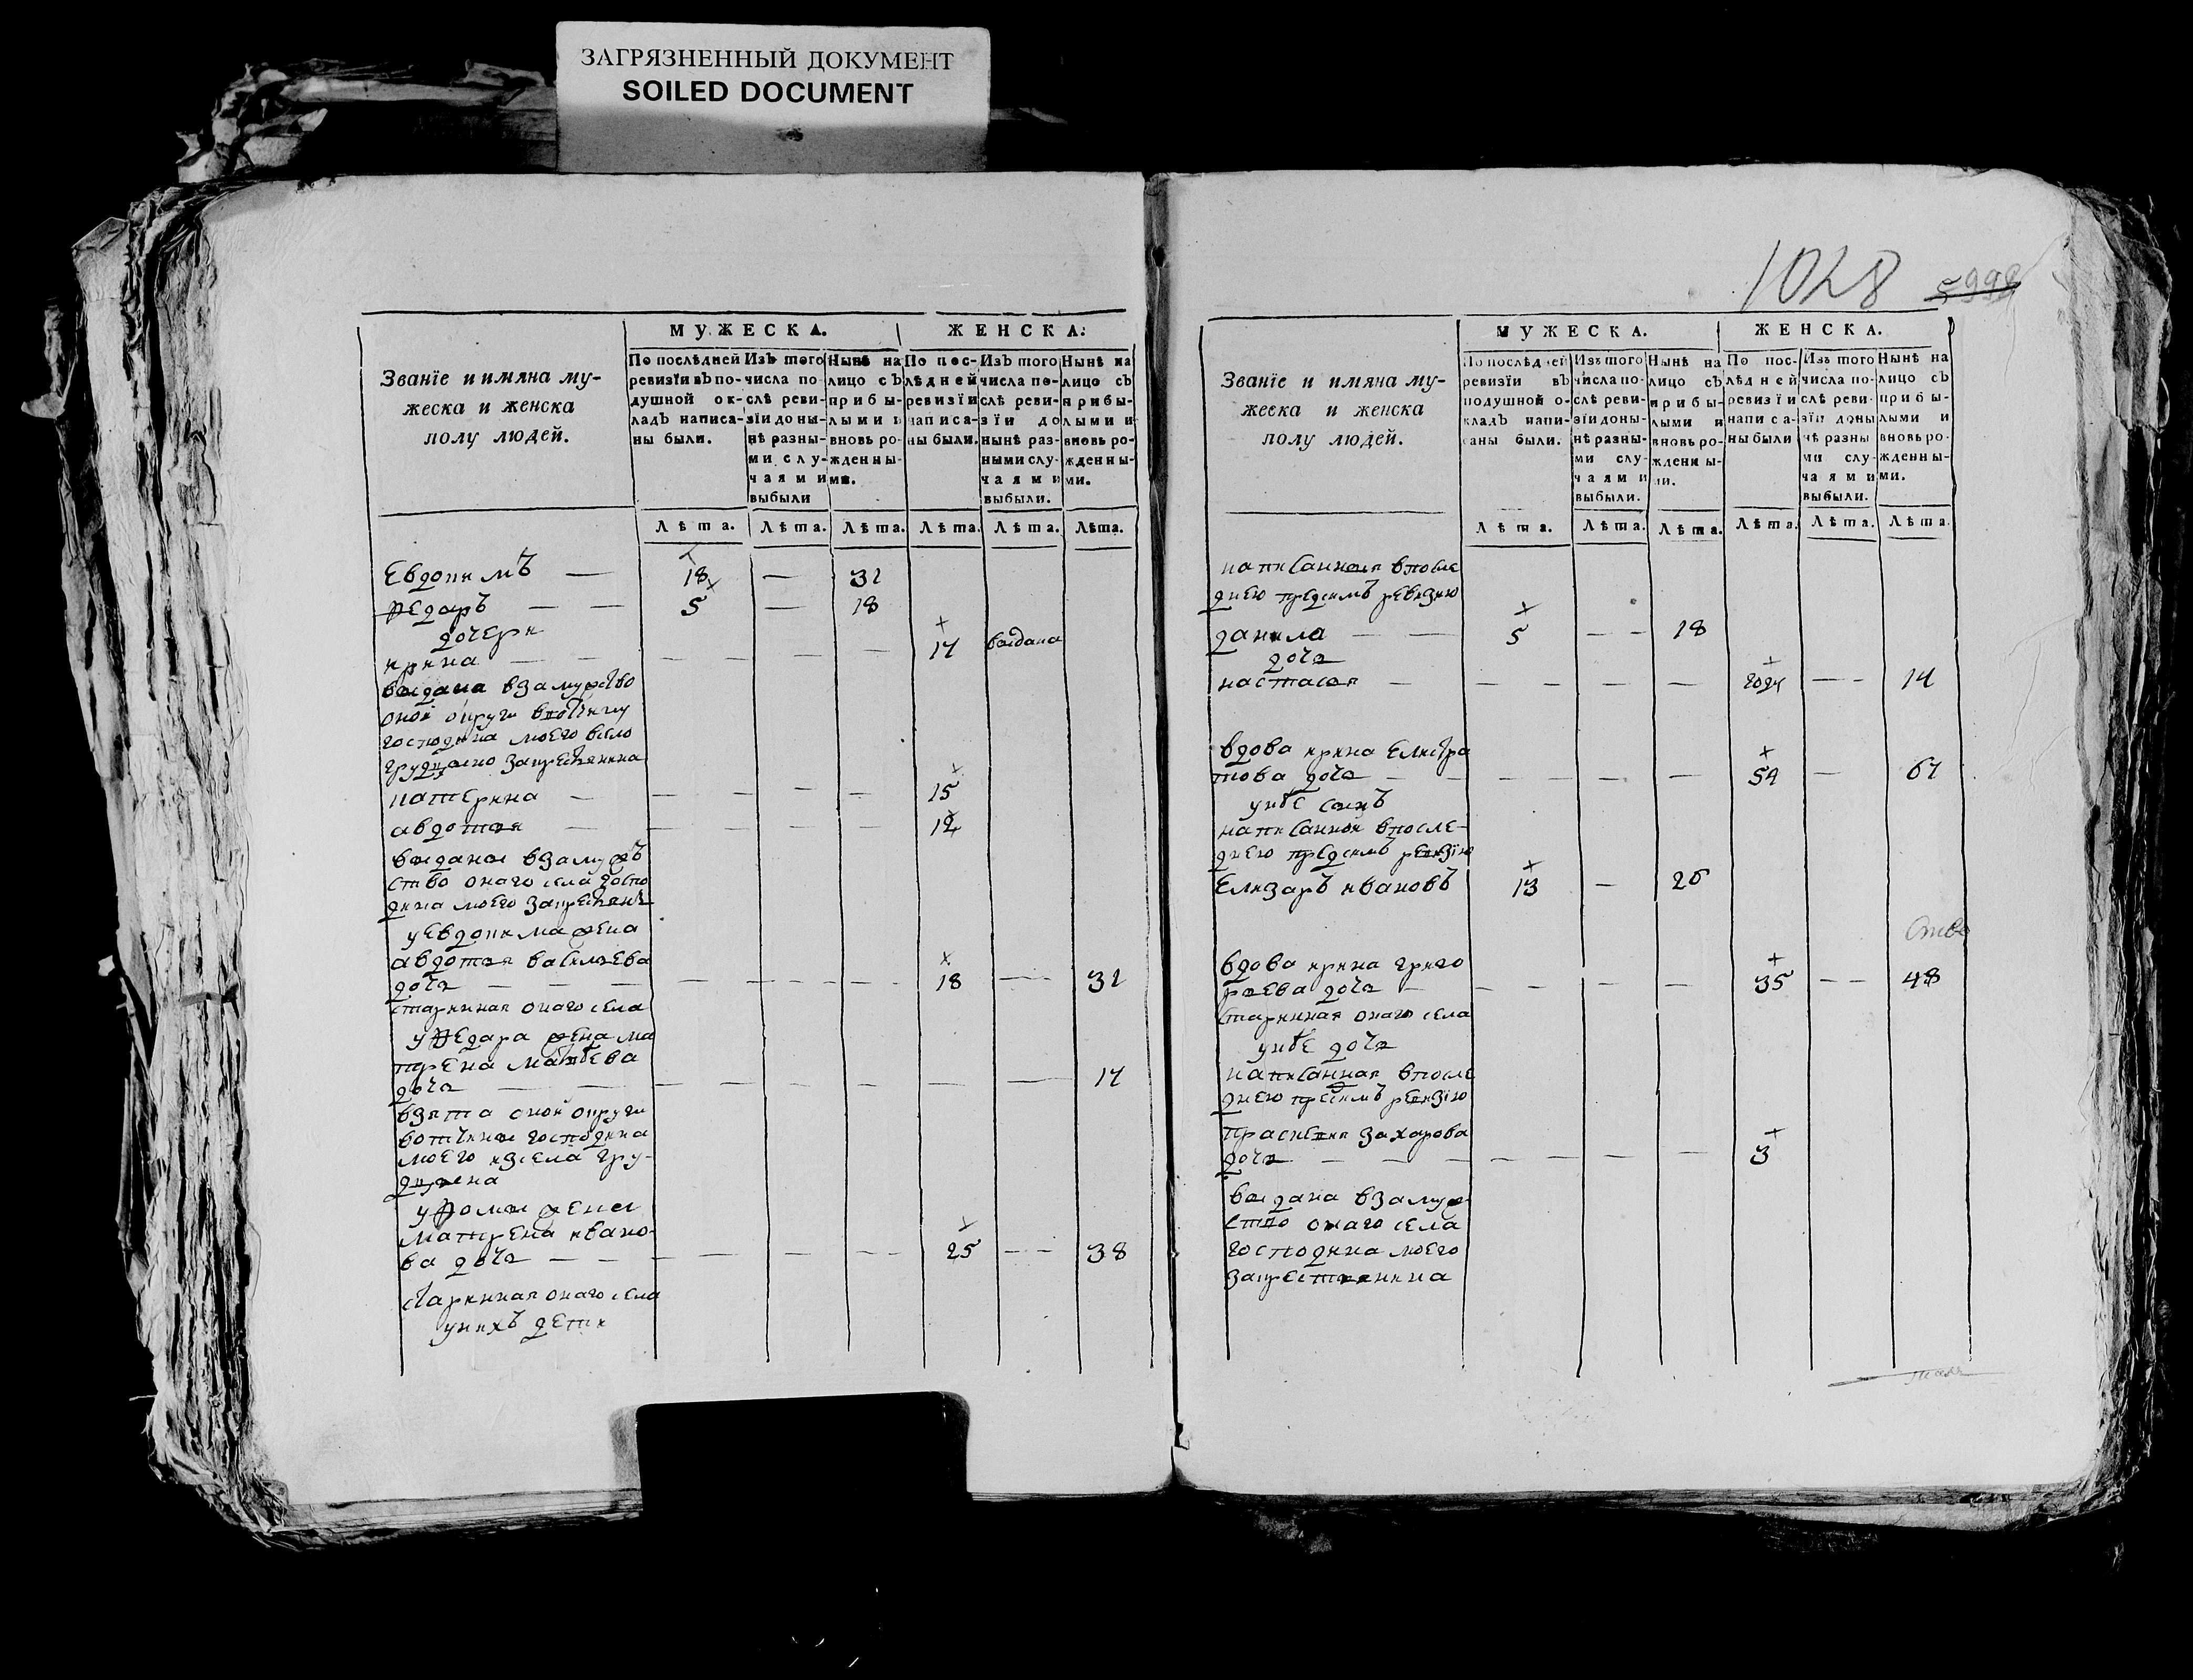 ЗАГРЯЗНЕННЫЙ ДОКУМЕНТ
SOILED DOCUMENT
Званїе и имяна му-
жеска и женска
полу людей.
МУЖЕСКА.
ЖЕНСКА.
По послѣдней
ревизїи въ по-
душной ок-
ладъ написа-
ны были.
Изъ того
числа по
слѣ реви-
зїи доны-
нѣ разны-
ми слу-
чаями
выбыли
Нынѣ на
лицо съ
прибы-
лыми и
вновь ро-
жденны-
ми.
По пос-
лѣдней
ревизїи
написа-
ны были.
Изъ того
числа по-
слѣ реви-
зїи до
нынѣ раз-
ными слу-
чаями
выбыли.
Нынѣ на
лицо съ
прибы-
лыми и
вновь ро-
жденны-
ми.
Лѣта. Лѣта. Лѣта. Лѣта. Лѣта. Лѣта.
Евдокимъ — 18 — 31
Федаръ — — 5 — 18
дочери
ирина — — — — — — 17 выдана
выдана взамужство
оной округи вотчину
господина моего всело
за крестьянина
катерина — — — — — 15
авдотья — — — — — 12
выданы взамужъ
ство онаго села госпо
дина моего закрестьянъ
уевдокима жена
авдотья васильева
дочь — — — — — — — — 18 — 31
старинная онаго села
уфедара жена ма
трена матвева
дочь — — — — — — — — 17
взята оной округи
вотчины господина
моего изсела гру-
уфомы жена
матрена ивано-
ва дочь — — — — — — 25 — — 38
старинная онаго села
унихъ дети
1028
Званїе и имяна му-
жеска и женска
полу людей.
МУЖЕСКА.
ЖЕНСКА.
По послѣдней
ревизїи въ
подушной о-
кладъ напи-
саны были.
Изъ того
числа по-
слѣ реви-
зїи доны-
нѣ разны-
ми слу-
чаями
выбыли.
Нынѣ на
лицо съ
прибы-
лыми и
вновь ро-
жденны-
ми.
По пос-
лѣдней
ревизїи
написа-
ны были
Изъ того
числа по-
слѣ реви-
зїи доны
нѣ разны
ми слу-
чаями
выбыли.
Нынѣ на
лицо съ
прибы-
лыми и
вновь ро-
жденны-
ми.
Лѣта. Лѣта. Лѣта. Лѣта. Лѣта. Лѣта.
написанныя впосле
днею предсимъ ревизию
данила — — 5 — — 18
дочь
настасья — — — — — — году — — 14
вдова ирина Елистра
това дочь — — — — — — 54 — 67
унѣе сынъ
написанной впосле-
днею предсимъ ревизїю
Елизаръ ивановъ 13 — 26
вдова ирина григо
рьева дочь — — — — — 35 — — 48
старинная онаго села
унѣе дочь
написанная впосле
днею пресимъ ревизїю
прасковья захарова
дочь — — — — — — — 3
выдана взамуж
ство онаго села
господина моего
закрестьянина